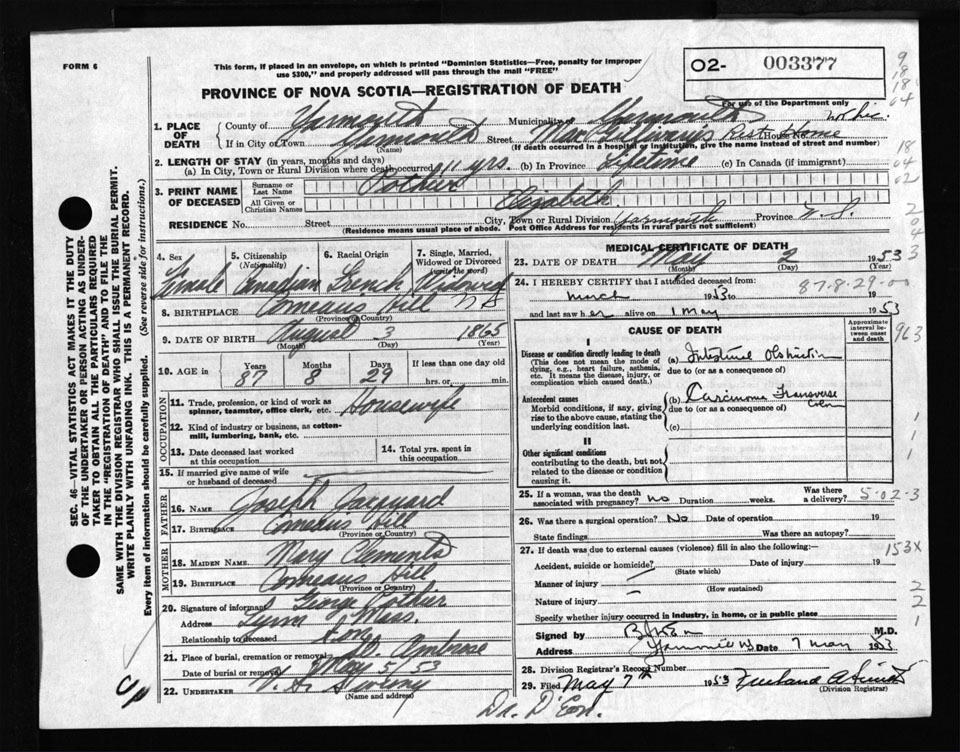 FORM 6
This form, if placed in an envelope, on which is printed "Dominion Statistics—Free, penalty for improper
use $300," and properly addressed will pass through the mail "FREE"
02- 003377
For use of the Department only
PROVINCE OF NOVA SCOTIA—REGISTRATION OF DEATH
1. PLACE OF DEATH
County of Yarmouth Municipality of Yarmouth
If in City or Town Yarmouth Street Rest Home
(Name) (House No.)
(If death occurred in a hospital or institution, give the name instead of street and number)
2. LENGTH OF STAY (in years, months and days)
(a) In City, Town or Rural Division where death occurred 11 yrs. (b) In Province Lifetime (c) In Canada (if immigrant)
3. PRINT NAME OF DECEASED
Surname or Last Name Pothier
All Given or Christian Names Elizabeth
RESIDENCE No. Street City, Town or Rural Division Yarmouth Province N.S.
(Residence means usual place of abode. Post Office Address for residents in rural parts not sufficient)
4. Sex Female
5. Citizenship (Nationality) Canadian
6. Racial Origin French
7. Single, Married, Widowed or Divorced (write the word) Widowed
8. BIRTHPLACE Comeaus Hill N S
(Province or Country)
9. DATE OF BIRTH August 3 1865
(Month) (Day) (Year)
10. AGE in Years 87 Months 8 Days 29 If less than one day old hrs. or min.
OCCUPATION
11. Trade, profession, or kind of work as spinner, teamster, office clerk, etc. Housewife
12. Kind of industry or business, as cotton-mill, lumbering, bank, etc.
13. Date deceased last worked at this occupation
14. Total yrs. spent in this occupation
15. If married give name of wife or husband of deceased
FATHER
16. NAME Joseph Jacquard
17. BIRTHPLACE Comeaus Hill
(Province or Country)
MOTHER
18. MAIDEN NAME Mary Clements
19. BIRTHPLACE Comeaus Hill
(Province or Country)
20. Signature of informant George Pothier
Address Lynn Mass.
Relationship to deceased Son
21. Place of burial, cremation or removal St. Ambrose
Date of burial or removal May 5/53
22. UNDERTAKER V. S. Sweeny
(Name and address)
MEDICAL CERTIFICATE OF DEATH
23. DATE OF DEATH May 2 1953
(Month) (Day) (Year)
24. I HEREBY CERTIFY that I attended deceased from:
87.8.29.00
March 1953 to 19
and last saw h er alive on 1 May 1953
CAUSE OF DEATH
Approximate interval between onset and death
I
Disease or condition directly leading to death (a) Intestinal Obstruction
(This does not mean the mode of dying, e.g., heart failure, asthenia, etc. It means the disease, injury, or complication which caused death.)
due to (or as a consequence of)
Antecedent causes (b) Carcinoma Transverse Colon
Morbid conditions, if any, giving rise to the above cause, stating the underlying condition last.
due to (or as a consequence of)
(c)
II
Other significant conditions
contributing to the death, but not related to the disease or condition causing it.
25. If a woman, was the death associated with pregnancy? no Duration weeks. Was there a delivery? 5-02-3
26. Was there a surgical operation? No Date of operation 19
State findings Was there an autopsy?
27. If death was due to external causes (violence) fill in also the following:—
Accident, suicide or homicide? Date of injury 19
(State which)
Manner of injury
(How sustained)
Nature of injury
Specify whether injury occurred in industry, in home, or in public place
Signed by M.D.
Address Date 7 May 1953
28. Division Registrar's Record Number
29. Filed May 7th 1953
(Division Registrar)
Dr. D'Eon.
SEC. 46—VITAL STATISTICS ACT MAKES IT THE DUTY
OF THE UNDERTAKER OR PERSON ACTING AS UNDER-
TAKER TO OBTAIN ALL THE PARTICULARS REQUIRED
IN THE "REGISTRATION OF DEATH" AND TO FILE THE
SAME WITH THE DIVISION REGISTRAR WHO SHALL ISSUE THE BURIAL PERMIT.
WRITE PLAINLY WITH UNFADING INK. THIS IS A PERMANENT RECORD.
Every item of information should be carefully supplied. (See reverse side for instructions.)
9
18
18
04
18
04
02
2
0
4
3
963
1
1
1
153X
2
2
1